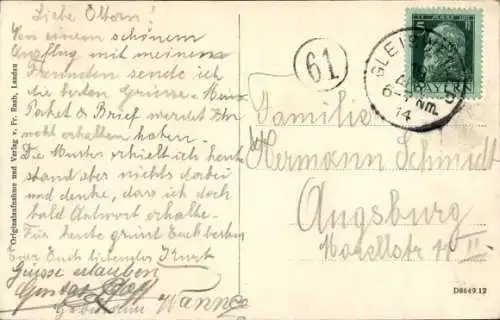 Liebe Eltern!
Von einem schönem
Ausflug mit meinen
Freunden sende ich
die besten Grüsse. Mein
Paket & Brief werdet Ihr
wohl erhalten haben.
Die erhielt ich heute
stand aber nichts dabei
und denke, dass ich doch
bald Antwort erhalte.
Für heute grüsst Euch bestens
Euer Euch liebender
Grüsse erlauben
Originalaufnahme und Verlag v. Fr. Raab, Landau
61
5
BAYERN
GLEISWEILER
6-7 Nm.
14
Familie
Hermann Schmidt
Augsburg
III
D8649.12